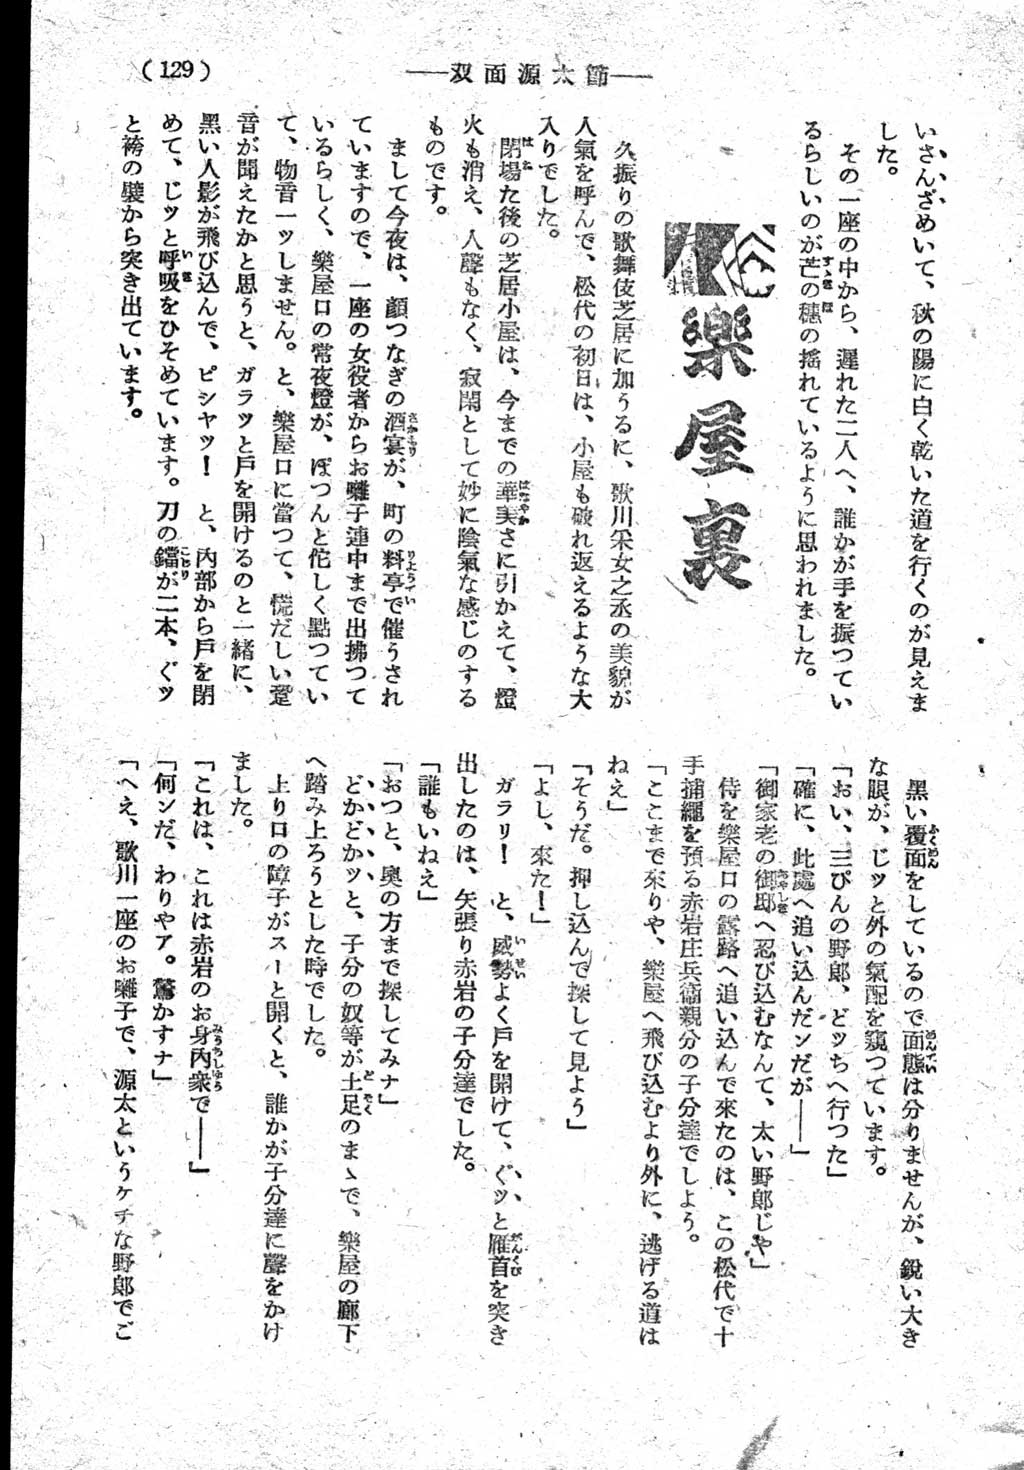 (129)
――双面源太節――
いさんざめいて、秋の陽に白く乾いた道を行くのが見えま
した。
その一座の中から、遅れた二人へ、誰かが手を振つてい
るらしいのが芒の穗の搖れているように思われました。
樂屋裏
久振りの歌舞伎芝居に加うるに、歌川采女之丞の美貌が
人氣を呼んで、松代の初日は、小屋も破れ返えるような大
入りでした。
閉場た後の芝居小屋は、今までの華美さに引かえて、燈
火も消え、人聲もなく、寂閑として妙に陰氣な感じのする
ものです。
まして今夜は、顏つなぎの酒宴が、町の料亭で催うされ
ていますので、一座の女役者からお囃子連中まで出拂つて
いるらしく、樂屋口の常夜燈が、ぽつんと佗しく點つてい
て、物音一ッしません。と、樂屋口に當つて、慌だしい跫
音が聞えたかと思うと、ガラッと戸を開けるのと一緒に、
黑い人影が飛び込んで、ピシヤッ！　と、內部から戸を閉
めて、じッと呼吸をひそめています。刀の鐺が二本、ぐッ
と袴の襞から突き出ています。
黑い覆面をしているので面態は分りませんが、鋭い大き
な眼が、じッと外の氣配を窺つています。
「おい、三ぴんの野郎、どッちへ行つた」
「確に、此處へ追い込んだンだが――」
「御家老の御邸へ忍び込むなんて、太い野郎じや」
侍を樂屋口の露路へ追い込んで來たのは、この松代で十
手捕繩を預る赤岩庄兵衞親分の子分達でしよう。
「ここまで來りや、樂屋へ飛び込むより外に、逃げる道は
ねえ」
「そうだ。押し込んで探して見よう」
「よし、來た！」
ガラリ！　と、威勢よく戸を開けて、ぐッと雁首を突き
出したのは、矢張り赤岩の子分達でした。
「誰もいねえ」
「おつと、奧の方まで探してみナ」
どかどかッと、子分の奴等が土足のまゝで、樂屋の廊下
へ踏み上ろうとした時でした。
上り口の障子がスーと開くと、誰かが子分達に聲をかけ
ました。
「これは、これは赤岩のお身內衆で――」
「何ンだ、わりやア。驚かすナ」
「へえ、歌川一座のお囃子で、源太というケチな野郎でご